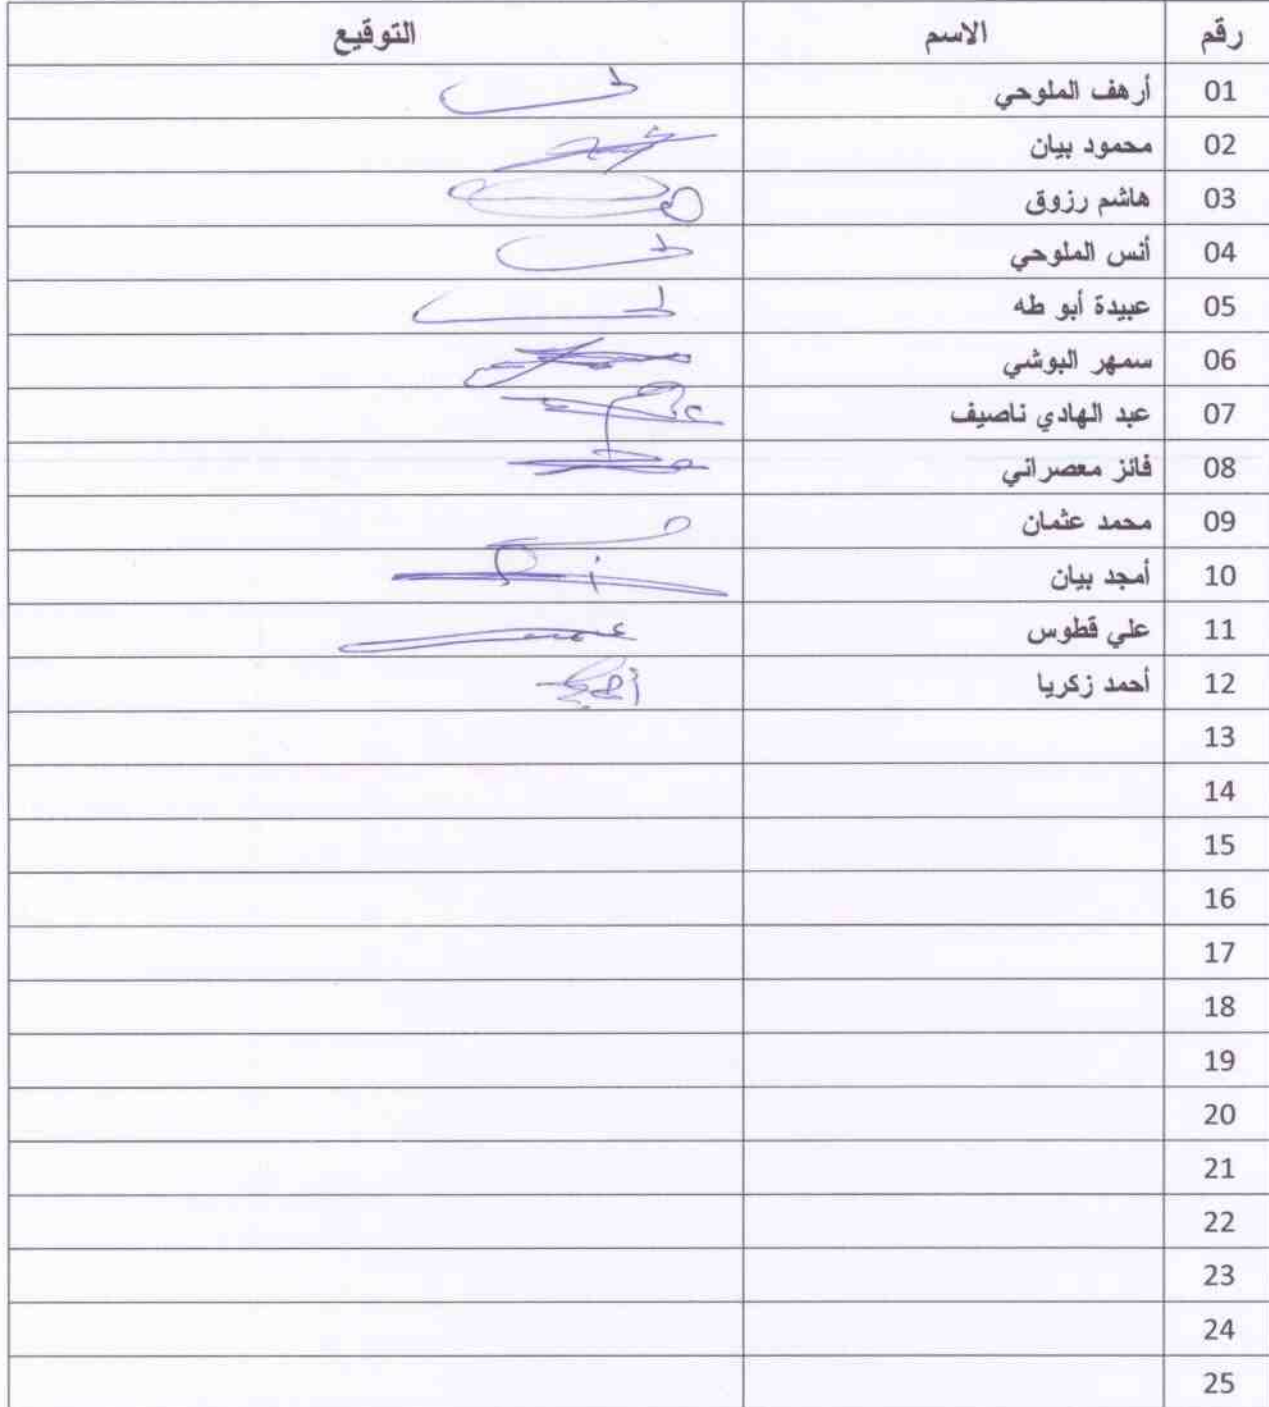 رقم الاسم التوقيع
01 أرهف الملوحي
02 محمود بيان
03 هاشم رزوق
04 أنس الملوحي
05 عبيدة أبو طه
06 سمهر البوشي
07 عبد الهادي ناصيف
08 فائز معصراني
09 محمد عثمان
10 أمجد بيان
11 علي قطوس
12 أحمد زكريا
13
14
15
16
17
18
19
20
21
22
23
24
25